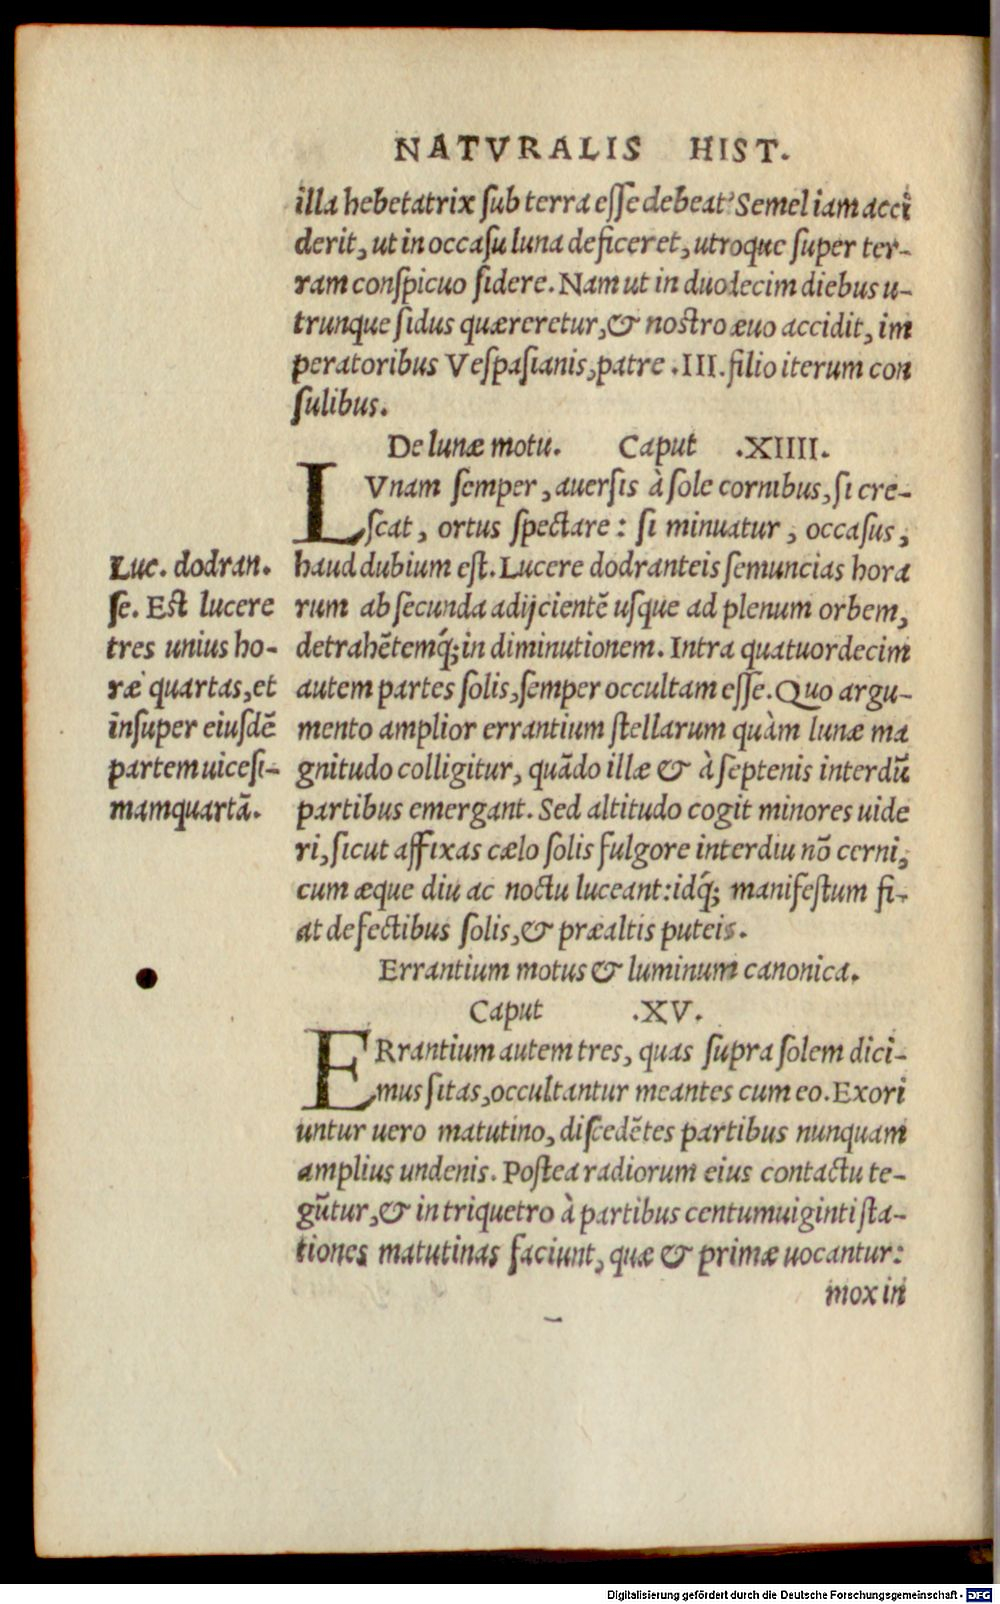 NATVRALIS HIST.
illa hebetatrix ſub terra eſſe debeat? Semel iam acci
derit, ut in occaſu luna deficeret, utroque ſuper ter-
ram conſpicuo ſidere. Nam ut in duodecim diebus u-
trunque ſidus quæreretur, & noſtro æuo accidit, im
peratoribus Veſpaſianis, patre .III. filio iterum con
ſulibus.
De lunæ motu. Caput .XIIII.
LVnam ſemper, auerſis à ſole cornibus, ſi cre-
ſcat, ortus ſpectare: ſi minuatur, occaſus,
haud dubium eſt. Lucere dodranteis ſemuncias hora
rum ab ſecunda adijcientẽ uſque ad plenum orbem,
detrahẽtemq́; in diminutionem. Intra quatuordecim
autem partes ſolis, ſemper occultam eſſe. Quo argu-
mento amplior errantium ſtellarum quàm lunæ ma
gnitudo colligitur, quãdo illæ & à ſeptenis interdũ
partibus emergant. Sed altitudo cogit minores uide
ri, ſicut affixas cælo ſolis fulgore interdiu nõ cerni,
cum æque diu ac noctu luceant: idq́; manifeſtum fi-
at defectibus ſolis, & præaltis puteis.
Luc. dodran.
ſe. Eſt lucere
tres unius ho-
ræ quartas, et
inſuper eiuſdẽ
partem uiceſi-
mamquartã.
Errantium motus & luminum canonica.
Caput .XV.
ERrantium autem tres, quas ſupra ſolem dici-
mus ſitas, occultantur meantes cum eo. Exori
untur uero matutino, diſcedẽtes partibus nunquam
amplius undenis. Poſtea radiorum eius contactu te-
gũtur, & in triquetro à partibus centumuiginti ſta-
tiones matutinas faciunt, quæ & primæ uocantur:
mox in
Digitalisierung gefördert durch die Deutsche Forschungsgemeinschaft - DFG